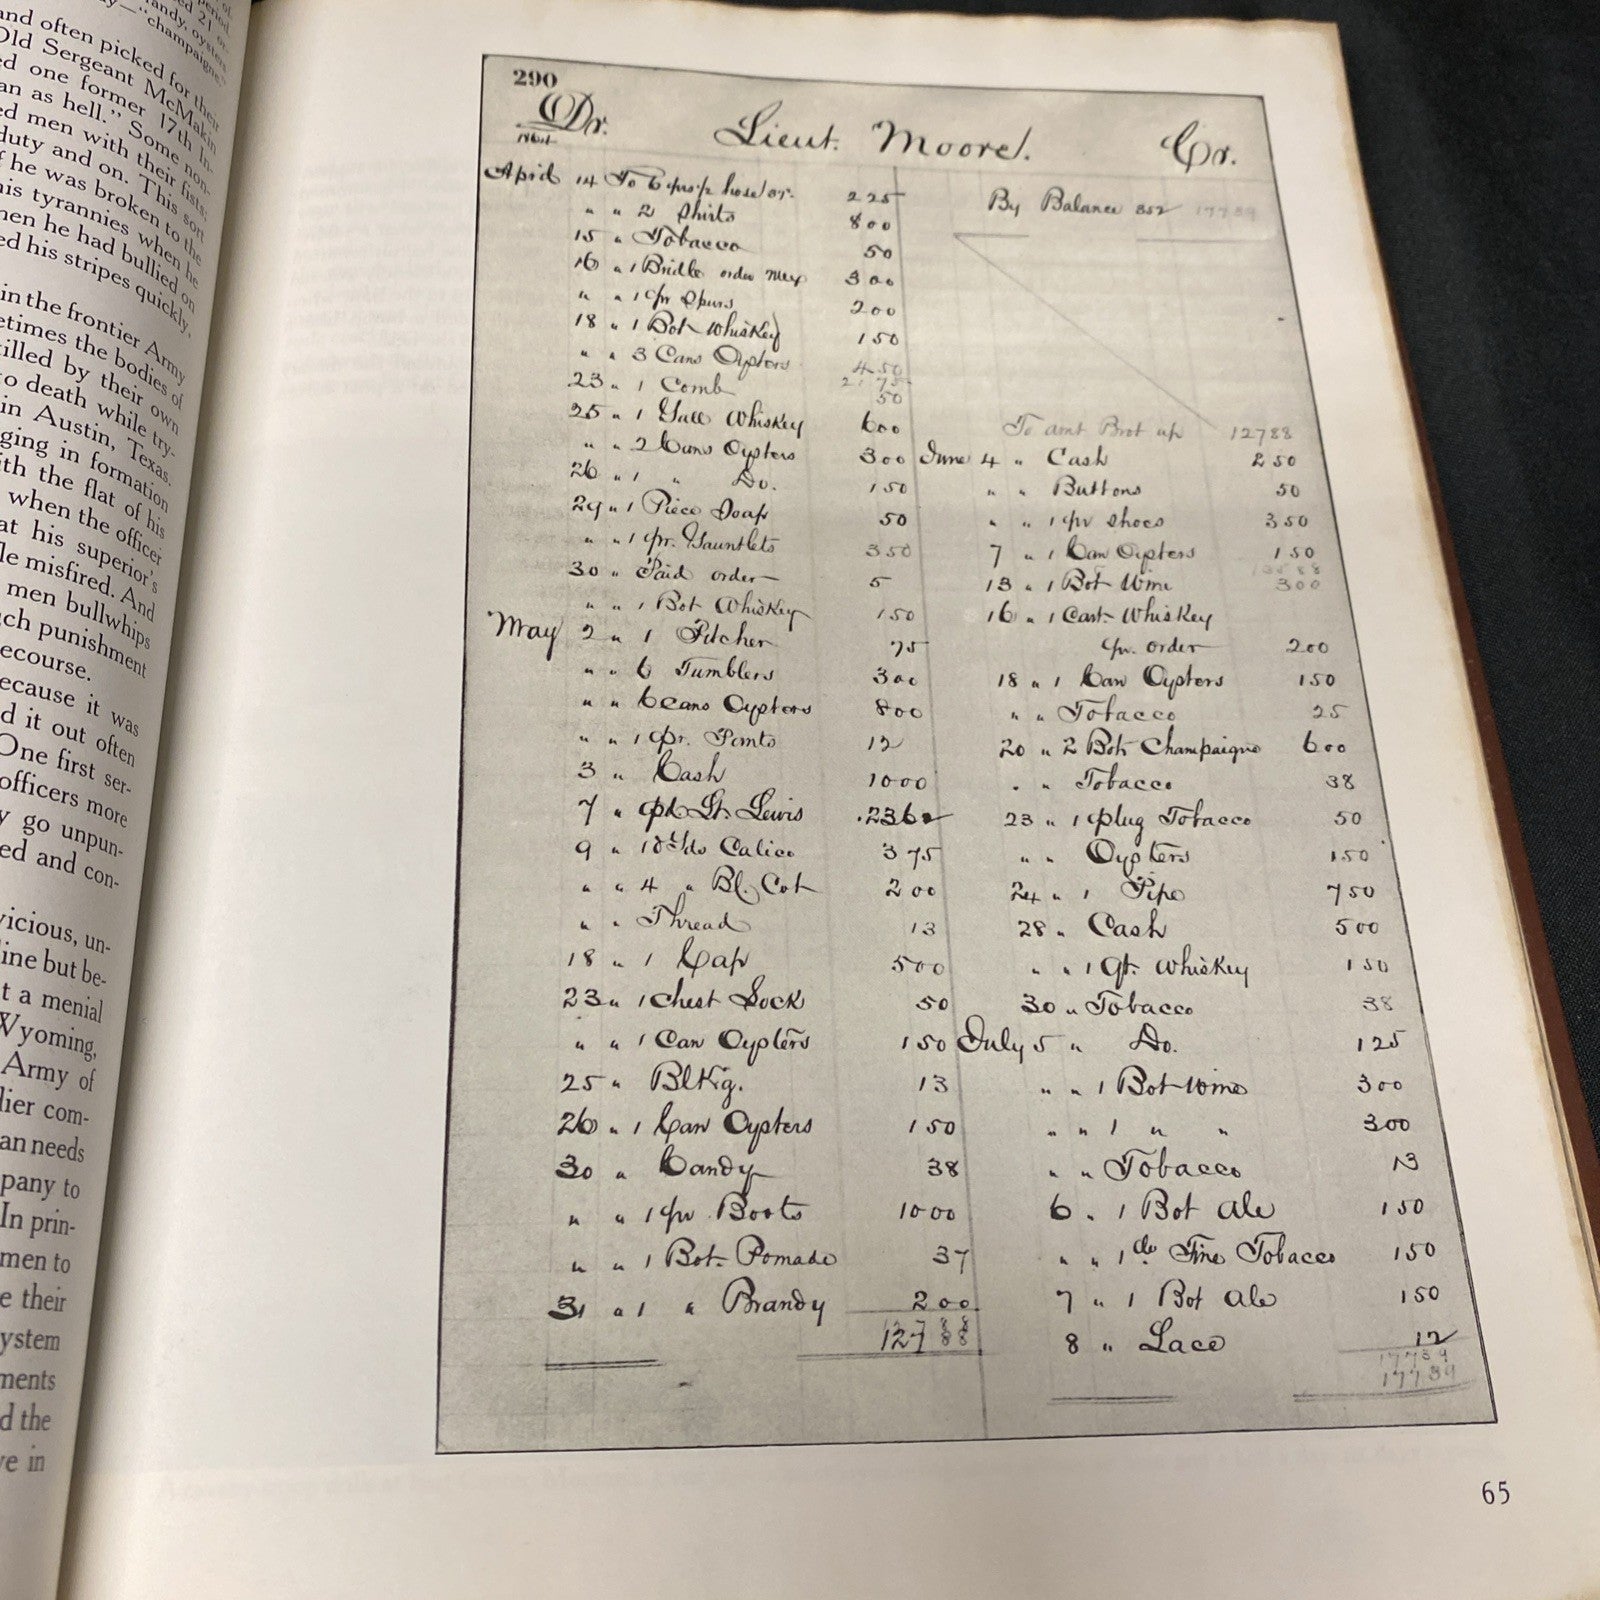 and often picked for their
Old Sergeant McMakin
ed one former 17th In-
an as hell." Some non-
ed men with their fists;
duty and on. This sort
f he was broken to the
his tyrannies when he
hen he had bullied on
ed his stripes quickly,
in the frontier Army
etimes the bodies of
killed by their own
to death while try-
in Austin, Texas.
ging in formation
ith the flat of his
when the officer
at his superior's
fle misfired. And
men bullwhips
ch punishment
ecourse.
ecause it was
d it out often
One first ser-
officers more
y go unpun-
ed and con-
vicious, un-
line but be-
t a menial
Wyoming,
Army of
lier com-
an needs
pany to
In prin-
men to
e their
ystem
ments
d the
ve in
290
Dr. Lieut. Moore. Cr.
April 14 To 6 prs hose 225
" " 2 Shirts 800
15 " Tobacco 50
16 " 1 Bridle order Mex 300
" " 1 pr Spurs 200
18 " 1 Bot Whiskey 150
" " 3 Cans Oysters 450
2175
23 " 1 Comb 50
25 " 1 Gall Whiskey 600
" " 2 Cans Oysters 300
26 " 1 " Do. 150
29 " 1 Piece Soap 50
" " 1 pr. Gauntlets 350
30 " Paid order 5
" " 1 Bot Whiskey 150
May 2 " 1 Pitcher 75
" " 6 Tumblers 300
" " 6 cans Oysters 800
" " 1 pr. Pants 12
3 " Cash 1000
7 " pd Lt. Lewis 2362
9 " 10 Yds Calico 375
" " 4 " Bl. Cot 200
" " Thread 13
18 " 1 Cap 500
23 " 1 Chest Lock 50
" " 1 Can Oysters 150
25 " Blkig. 13
26 " 1 Can Oysters 150
30 " Candy 38
" " 1 pr Boots 1000
" " 1 Bot. Pomade 37
31 " 1 " Brandy 200
12788
12788
By Balance 352 17739
To amt Brot up 12788
June 4 " Cash 250
" " Buttons 50
" " 1 pr Shoes 350
7 " 1 Can Oysters 150
13588
13 " 1 Bot Wine 300
16 " 1 Cast. Whiskey
pr. order 200
18 " 1 Can Oysters 150
" " Tobacco 25
20 " 2 Bot Champaigne 600
" " Tobacco 38
23 " 1 plug Tobacco 50
" " Oysters 150
24 " 1 Pipe 750
28 " Cash 500
" " 1 Qt. Whiskey 150
30 " Tobacco 38
July 5 " Do. 125
" " 1 Bot Wine 300
" " 1 " " 300
" " Tobacco 13
6 " 1 Bot Ale 150
" " 1 do. Fine Tobacco 150
7 " 1 Bot Ale 150
8 " Lace 12
17739
17739
65